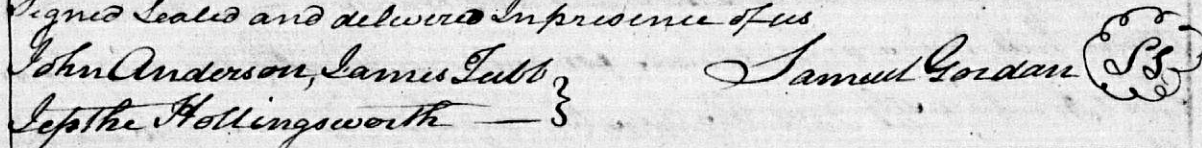 Signed Sealed and delivered In presence of us
John Anderson, James Tubb
Samuel Gordan
Jepthe Hollingsworth